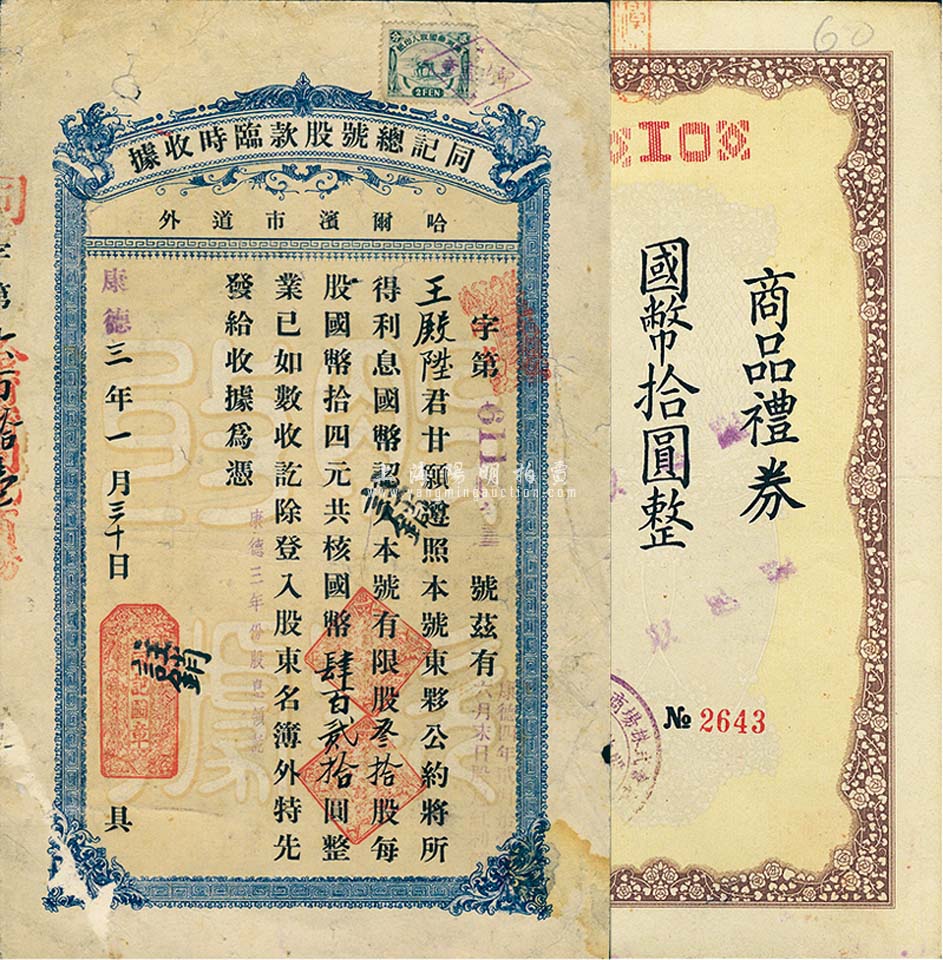 同記總號股款臨時收據
哈爾濱市道外
字第 611 號茲有
王殿陞君甘願遵照本號東夥公約將所
得利息國幣認入本號有限股叁拾股每
股國幣拾四元共核國幣肆百貳拾圓整
業已如數收訖除登入股東名簿外特先
發給收據爲憑
康德三年份股息領訖
康德三年一月三十日
具
註銷
註銷
康德四年
六月末日
2 FEN
上海陽明拍賣
www.yangmingauction.com
60
$10$
商品禮券
國幣拾圓整
№ 2643
商場株式會